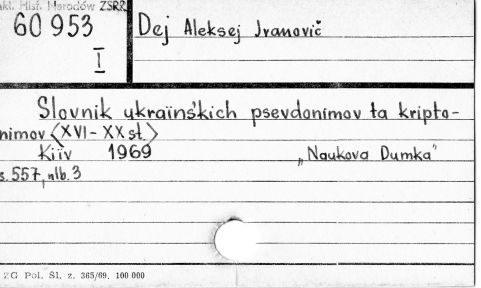 Zakł. Hist. Narodów ZSRR
60 953
I
Dej Aleksej Ivanovič
Slovnik ukraïnśkich psevdonimov ta kripto-
nimov <XVI-XX st.>
Kiïv 1969 „Naukova Dumka"
s. 557, nlb. 3
ZG Pol. Śl. z. 365/69. 100 000